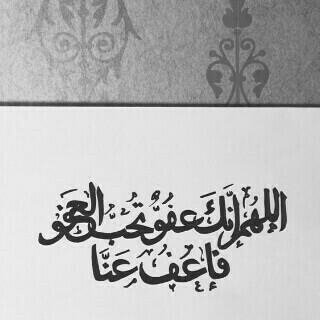 اللهُم إنَّكَ عفوٌ تحبُّ العفو
فإعفُ عَنَّا